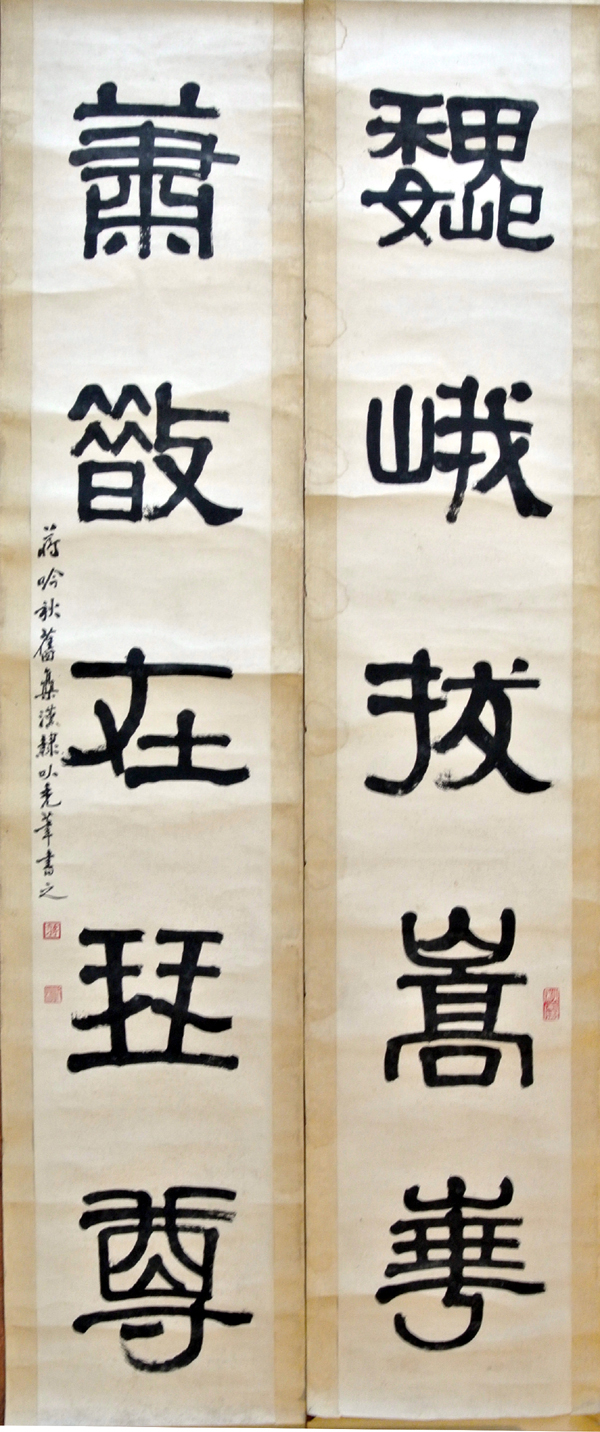 巍峨拔嵩華
蕭散在琴尊
蔣吟秋舊集漢隸以禿筆書之